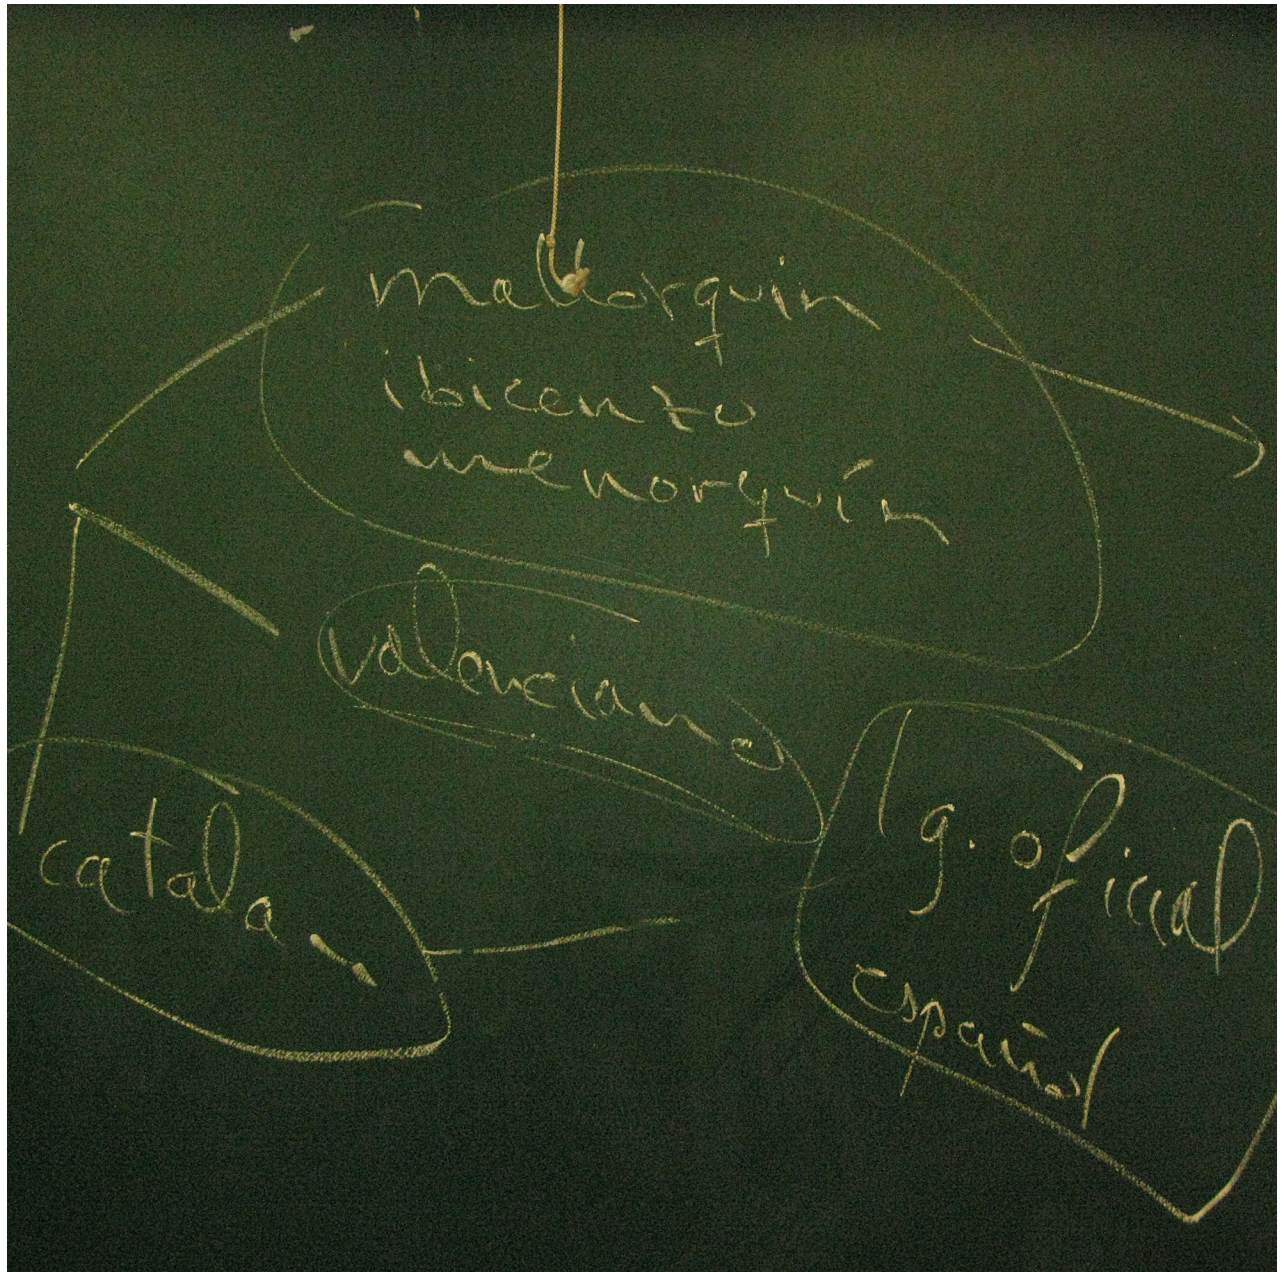 mallorquin
ibicenzo
menorquín
valenciano
catala
lg. oficial
español